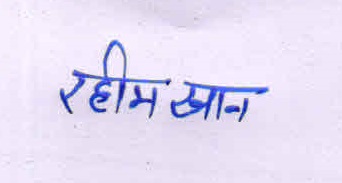 रहीम खान